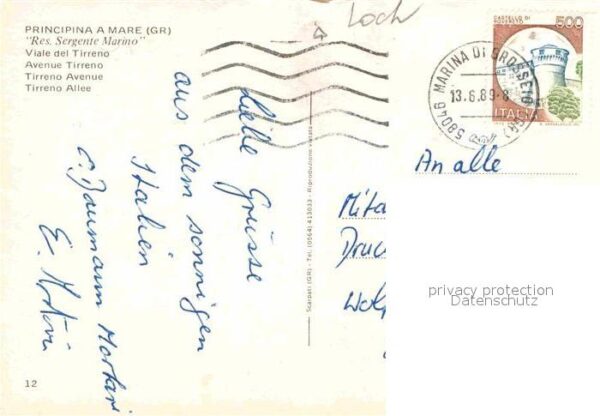 PRINCIPINA A MARE (GR)
"Res. Sergente Marino"
Viale del Tirreno
Avenue Tirreno
Tirreno Avenue
Tirreno Allee
Loch
CASTELLO DI
500
ITALIA
58046 MARINA DI GROSSETO (GR)
13.6.89-8
liebe Grüsse
aus dem sonnigen
Italien
Scarpati (GR) - Tel. (0564) 413033 - Riproduzione vietata
An alle
Mita
Druc
privacy protection
Datenschutz
12